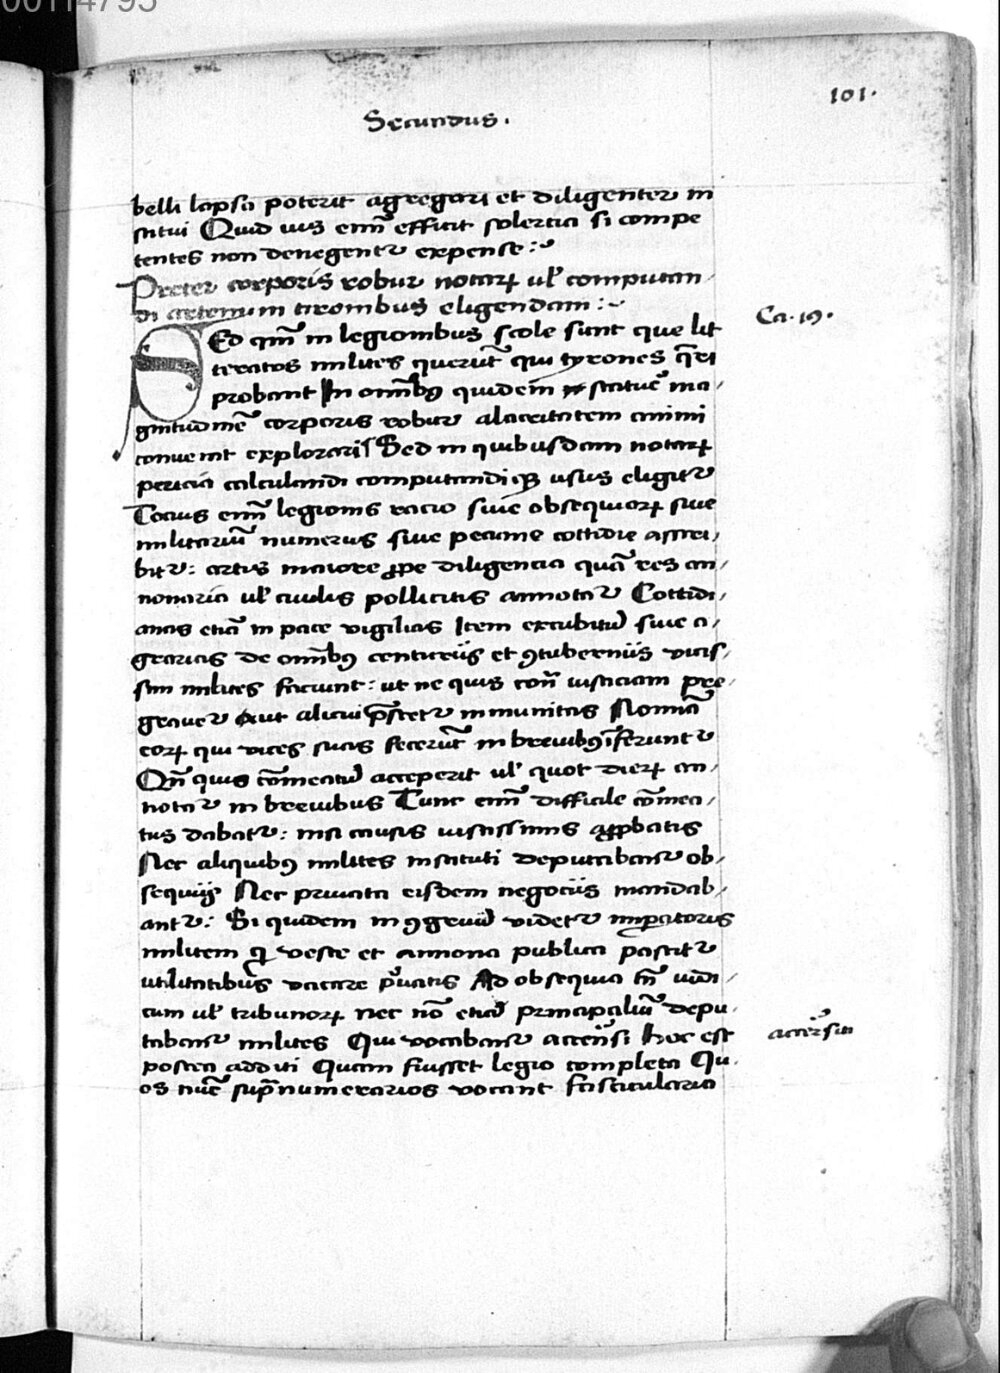 00114795
101.
Secundus.
belli lapsa poterit agregari et diligenter in
stitui Quid uis em̄ efficit solertia si compe
tentes non denegent᷑ expense :
Preter corporis robur notarꝝ uł computan
di artem in tironibus eligendam :
Ca. 19.
SEd qm̄ in legionibus scole sunt que lit
teratos milites querūt qui tyrones q̄ri
probant In om̄ibꝯ quidem statuē ma
gnitudinē corporis robur alacritatem animi
conuenit explorari Sed in quibusdam notarꝝ
pericia calculandi computandiqꝫ usus eligit᷑
Tocius em̄ legionis racio siue obsequiorꝝ siue
militariū numerus siue pecunie cottidie asscri
bit᷑ : actis maiore ꝓpe diligencia quā res an
nonaria uł ciuilis pollicitis annotat᷑ Cottidi
anas etiā in pace vigilias Item excubitū siue a
grarias de om̄ibꝯ centuriis et ꝯtuberniis vicis
sim milites faciunt : ut ne quis cont̄ iusticiam pre
grauet᷑ aut alicui p̄stet᷑ inmunitas Nomīa
eorꝝ qui vices suas fecerūt in breuibꝯ īferunt᷑
Qn̄ quis cōmeatū acceperit uł quot dierꝝ an
notat᷑ in breuibus Tunc em̄ difficile cōmea
tus dabat᷑ : nisi causis iustissimis aꝓbatis
Nec aliquibꝯ milites instituti deputabant᷑ ob
sequiis Nec priuata eisdem negociis mandab
ant᷑ : Si quidem in ꝯgruū videt᷑ imꝑatoris
militem q veste et annona publica pascit᷑
utilitatibus vacare p̲uatis Ad obsequia tn̄ iudi
cum uł tribunorꝝ nec nō etiā principaliū depu
tabant᷑ milites Qui vocabant᷑ accensi hoc est
accersiti
postea additi Quam fuisset legio completa Qu
os nūc sup̄numerarios vocant fascicularia